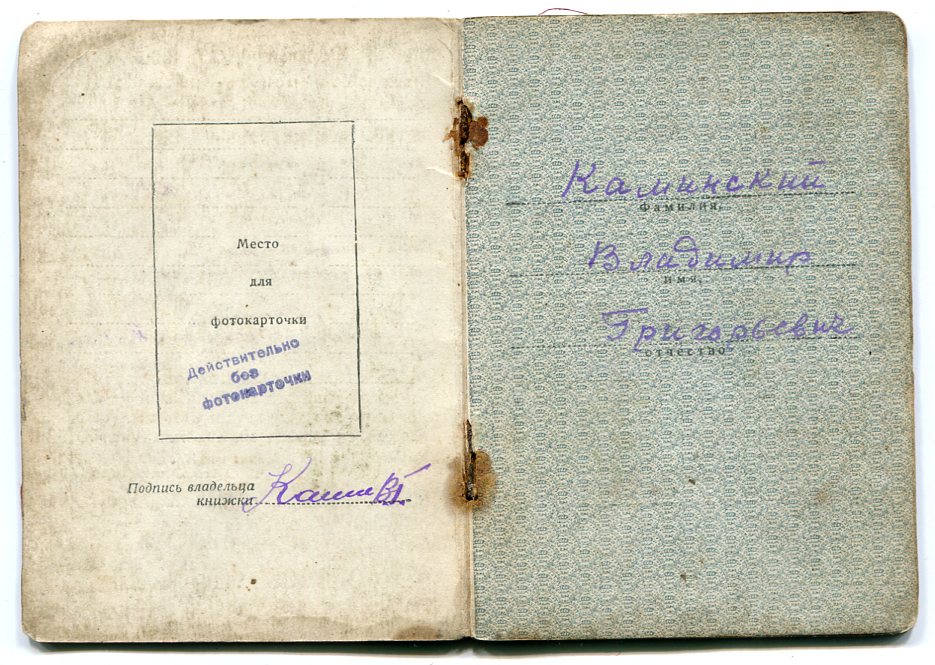 Место
для
фотокарточки
Действительно
без
фотокарточки
Подпись владельца
книжки
Каминский
фамилия,
Владимир
имя,
Григорьевич
отчество